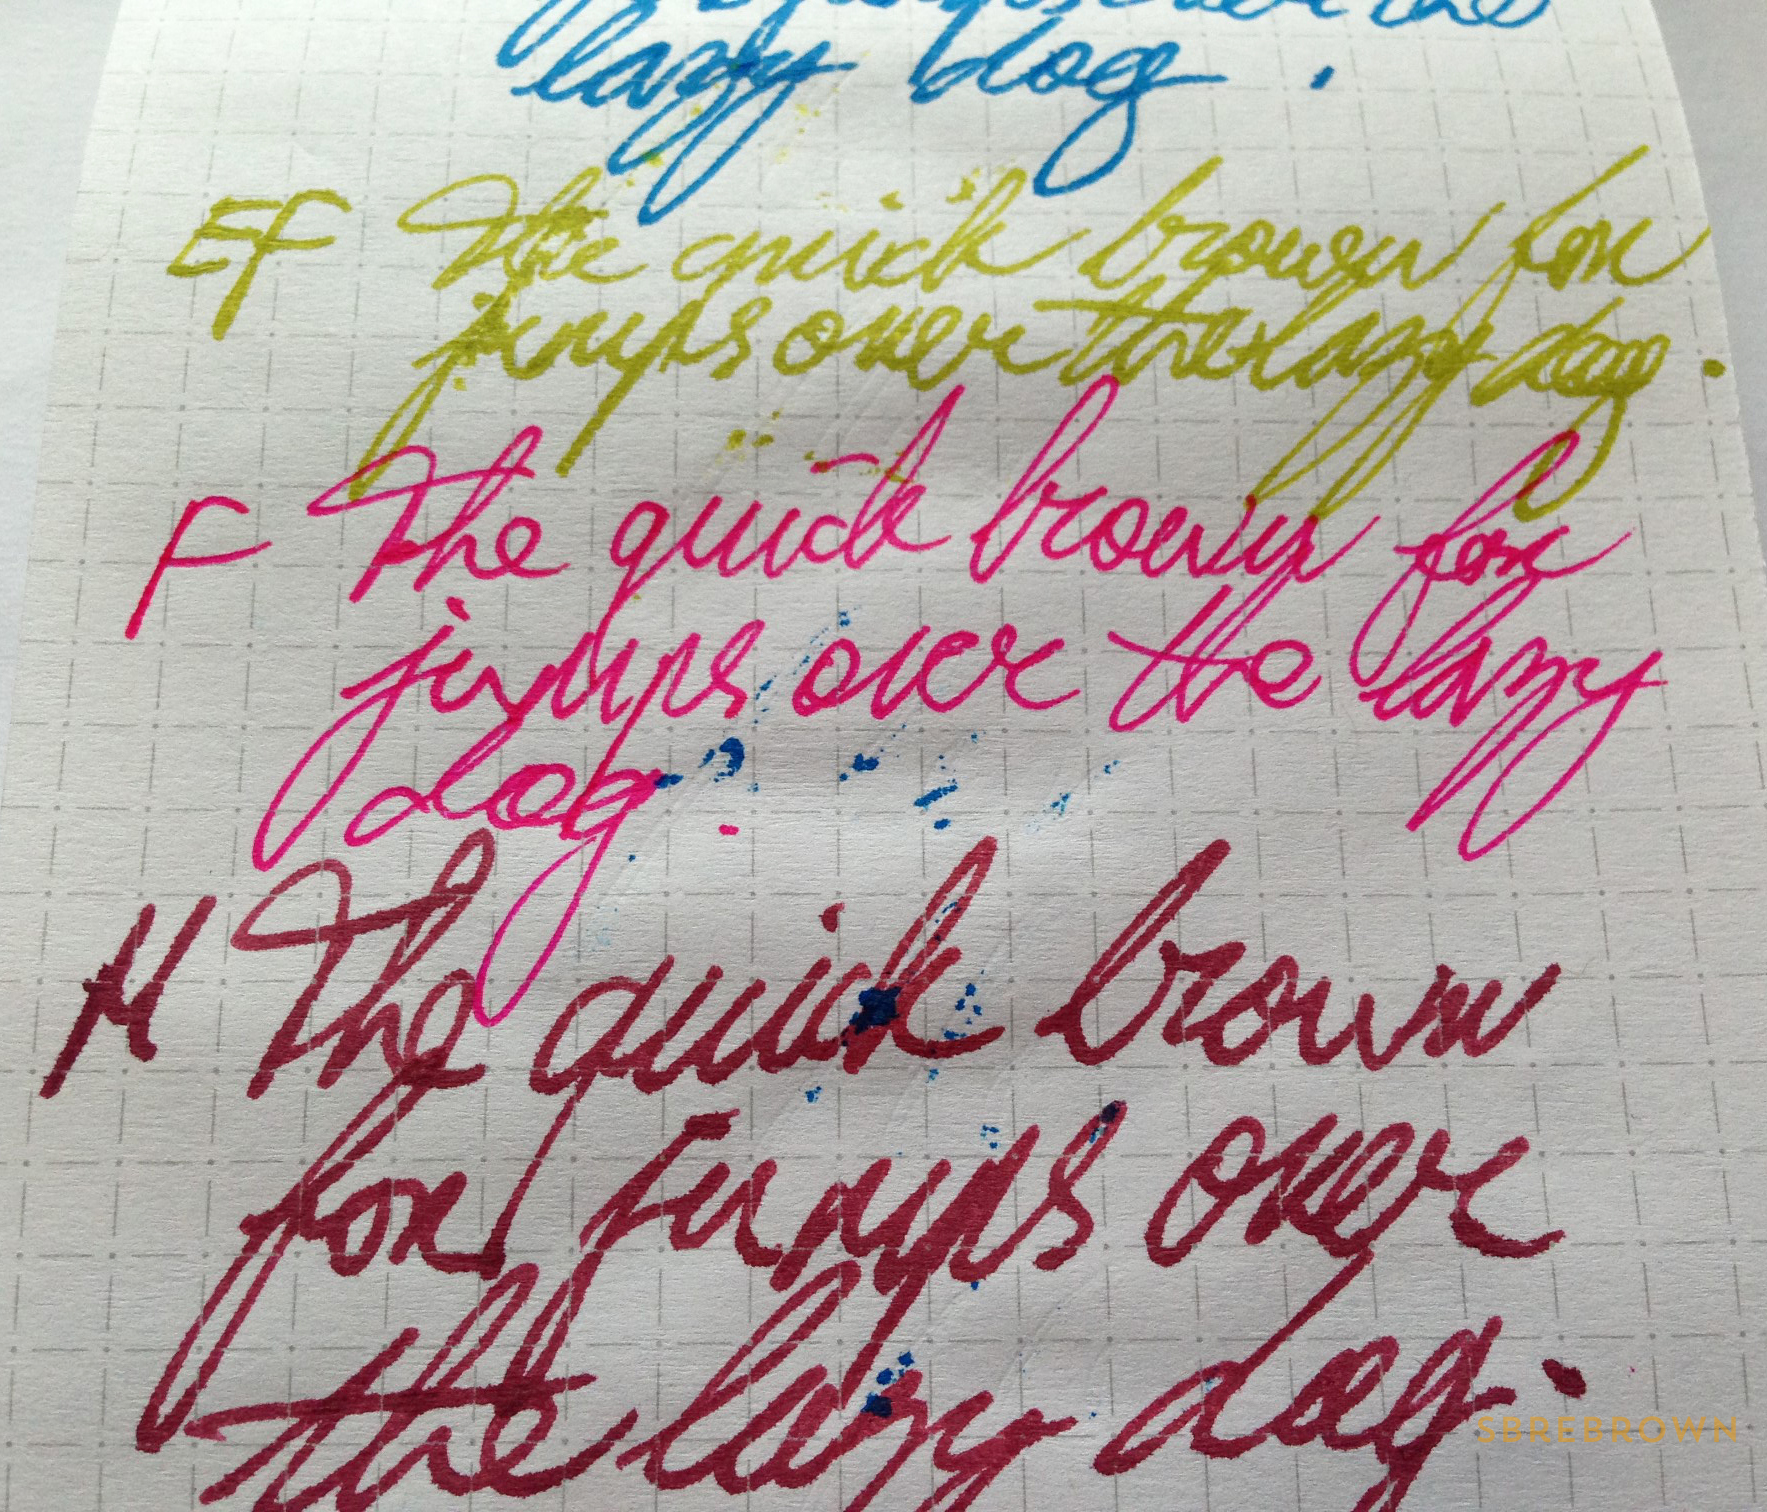 jumps over the
lazy dog.
EF The quick brown fox
jumps over the lazy dog.
F The quick brown fox
jumps over the lazy
dog.
M The quick brown
fox jumps over
the lazy dog.
SBREBROWN